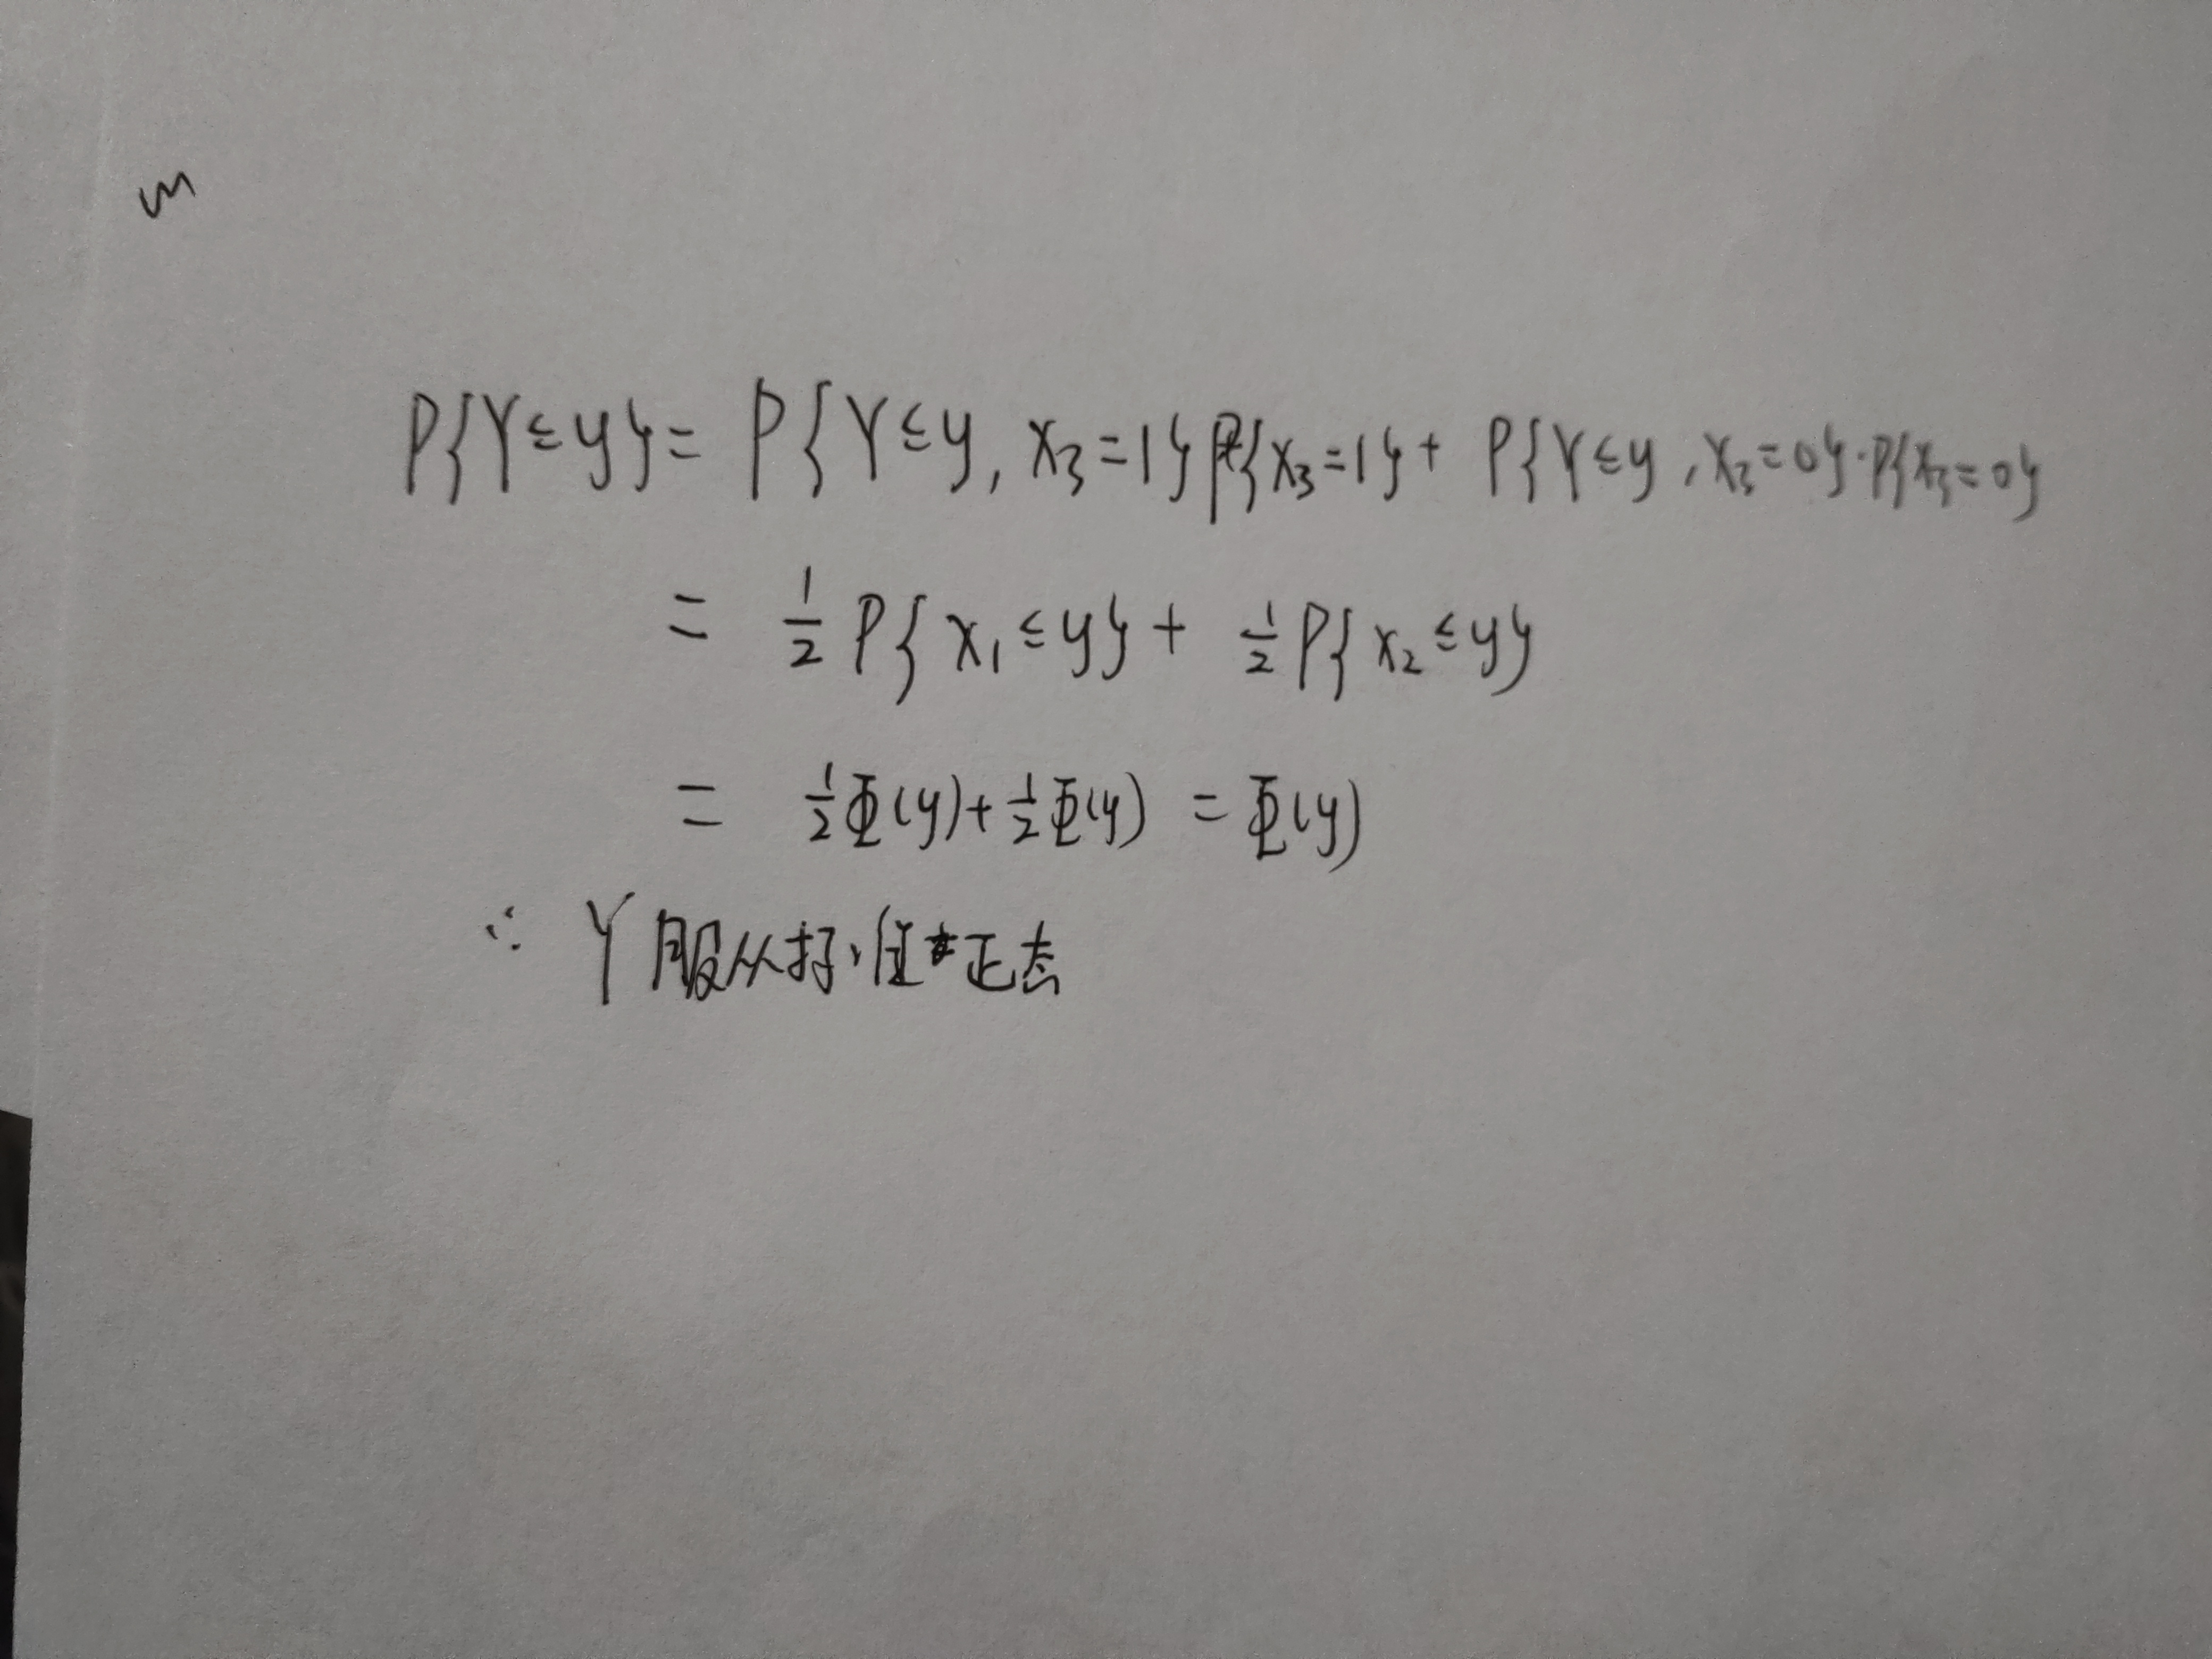 P{Y≤y}= P{Y≤y, X₃=1}P{X₃=1}+ P{Y≤y, X₃=0}·P{X₃=0}
= 1/2 P{X₁≤y}+ 1/2 P{X₂≤y}
= 1/2 Φ(y)+ 1/2 Φ(y) = Φ(y)
∴ Y服从标准正态